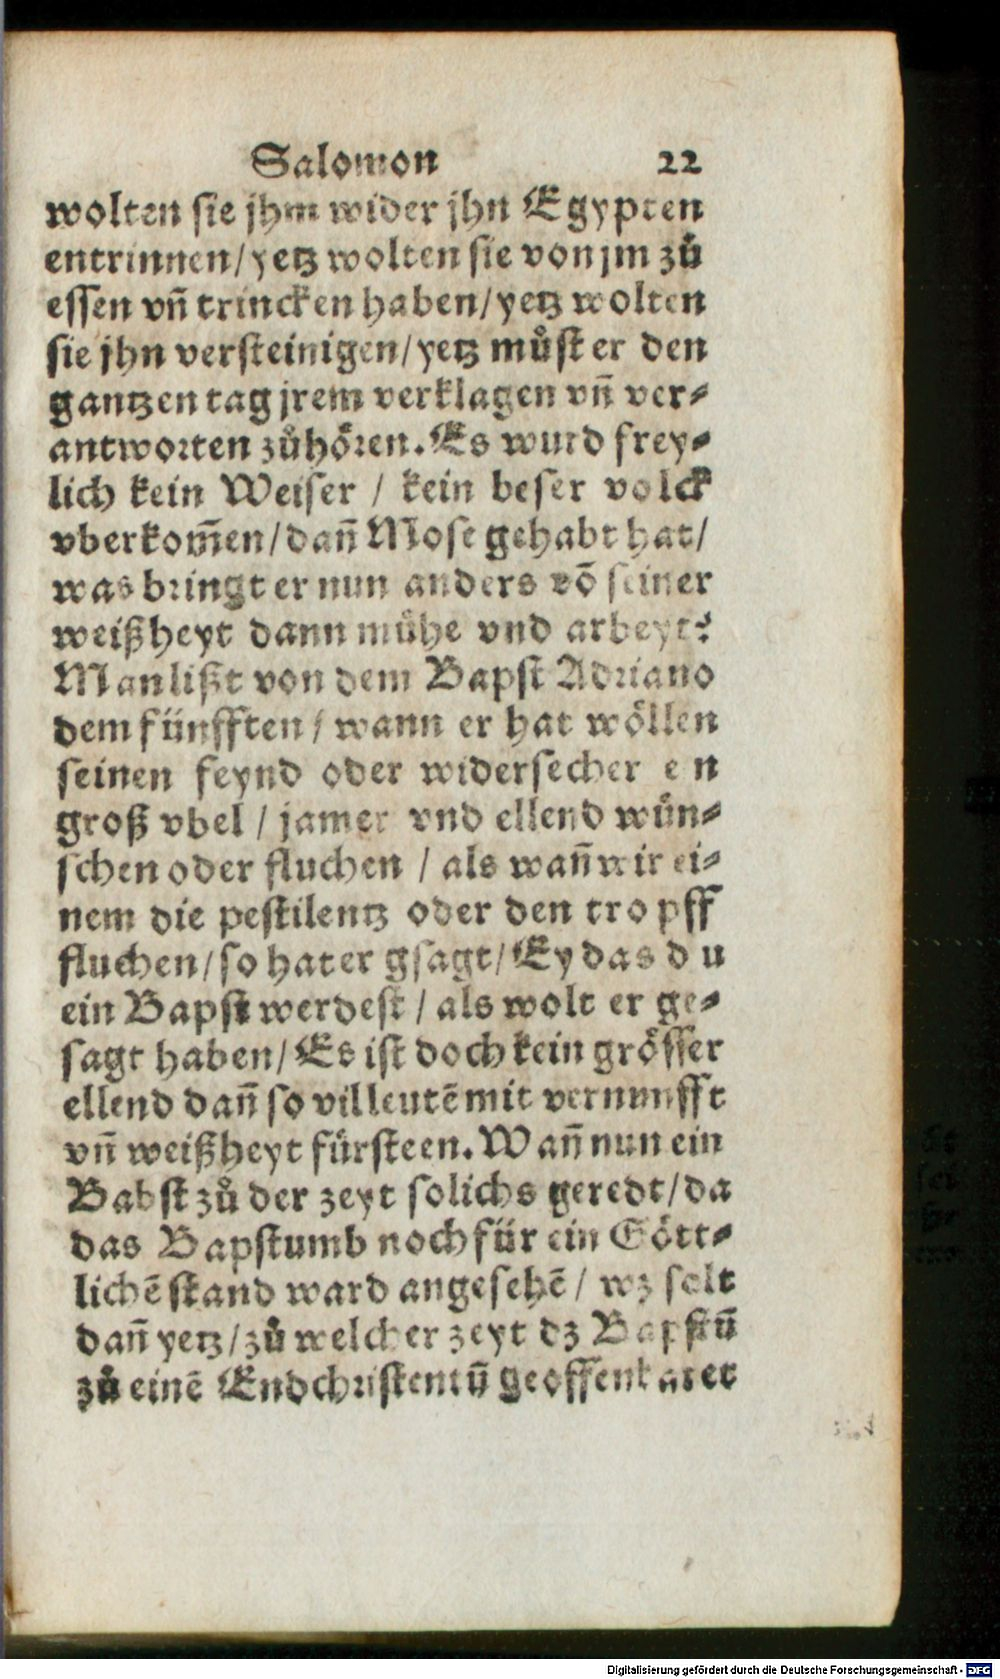 Salomon 22
wolten sie jhm wider jhn Egypten
entrinnen/yetz wolten sie von jm zů
essen vñ trincken haben/yetz wolten
sie jhn versteinigen/yetz můst er den
gantzen tag jrem verklagen vñ ver-
antworten zůhören. Es wurd frey-
lich kein Weiser / kein beser volck
vberkom̃en/dañ Mose gehabt hat/
was bringt er nun anders võ seiner
weißheyt dann mühe vnd arbeyt?
Man lißt von dem Bapst Adriano
dem fünfften / wann er hat wöllen
seinen feynd oder widersecher e n
groß vbel / jamer vnd ellend wün-
schen oder fluchen / als wañ wir ei-
nem die pestilentz oder den tropff
fluchen/so hat er gsagt/Ey das du
ein Bapst werdest / als wolt er ge-
sagt haben/Es ist doch kein grösser
ellend dañ so vil leutẽ mit vernunfft
vñ weißheyt fürsteen. Wañ nun ein
Babst zů der zeyt solichs geredt/da
das Bapstumb noch für ein Gött-
lichẽ stand ward angesehẽ / wz solt
dañ yetz/zů welcher zeyt dz Bapstũ
zů einẽ Endchristentũ geoffenbaret
Digitalisierung gefördert durch die Deutsche Forschungsgemeinschaft - DFG